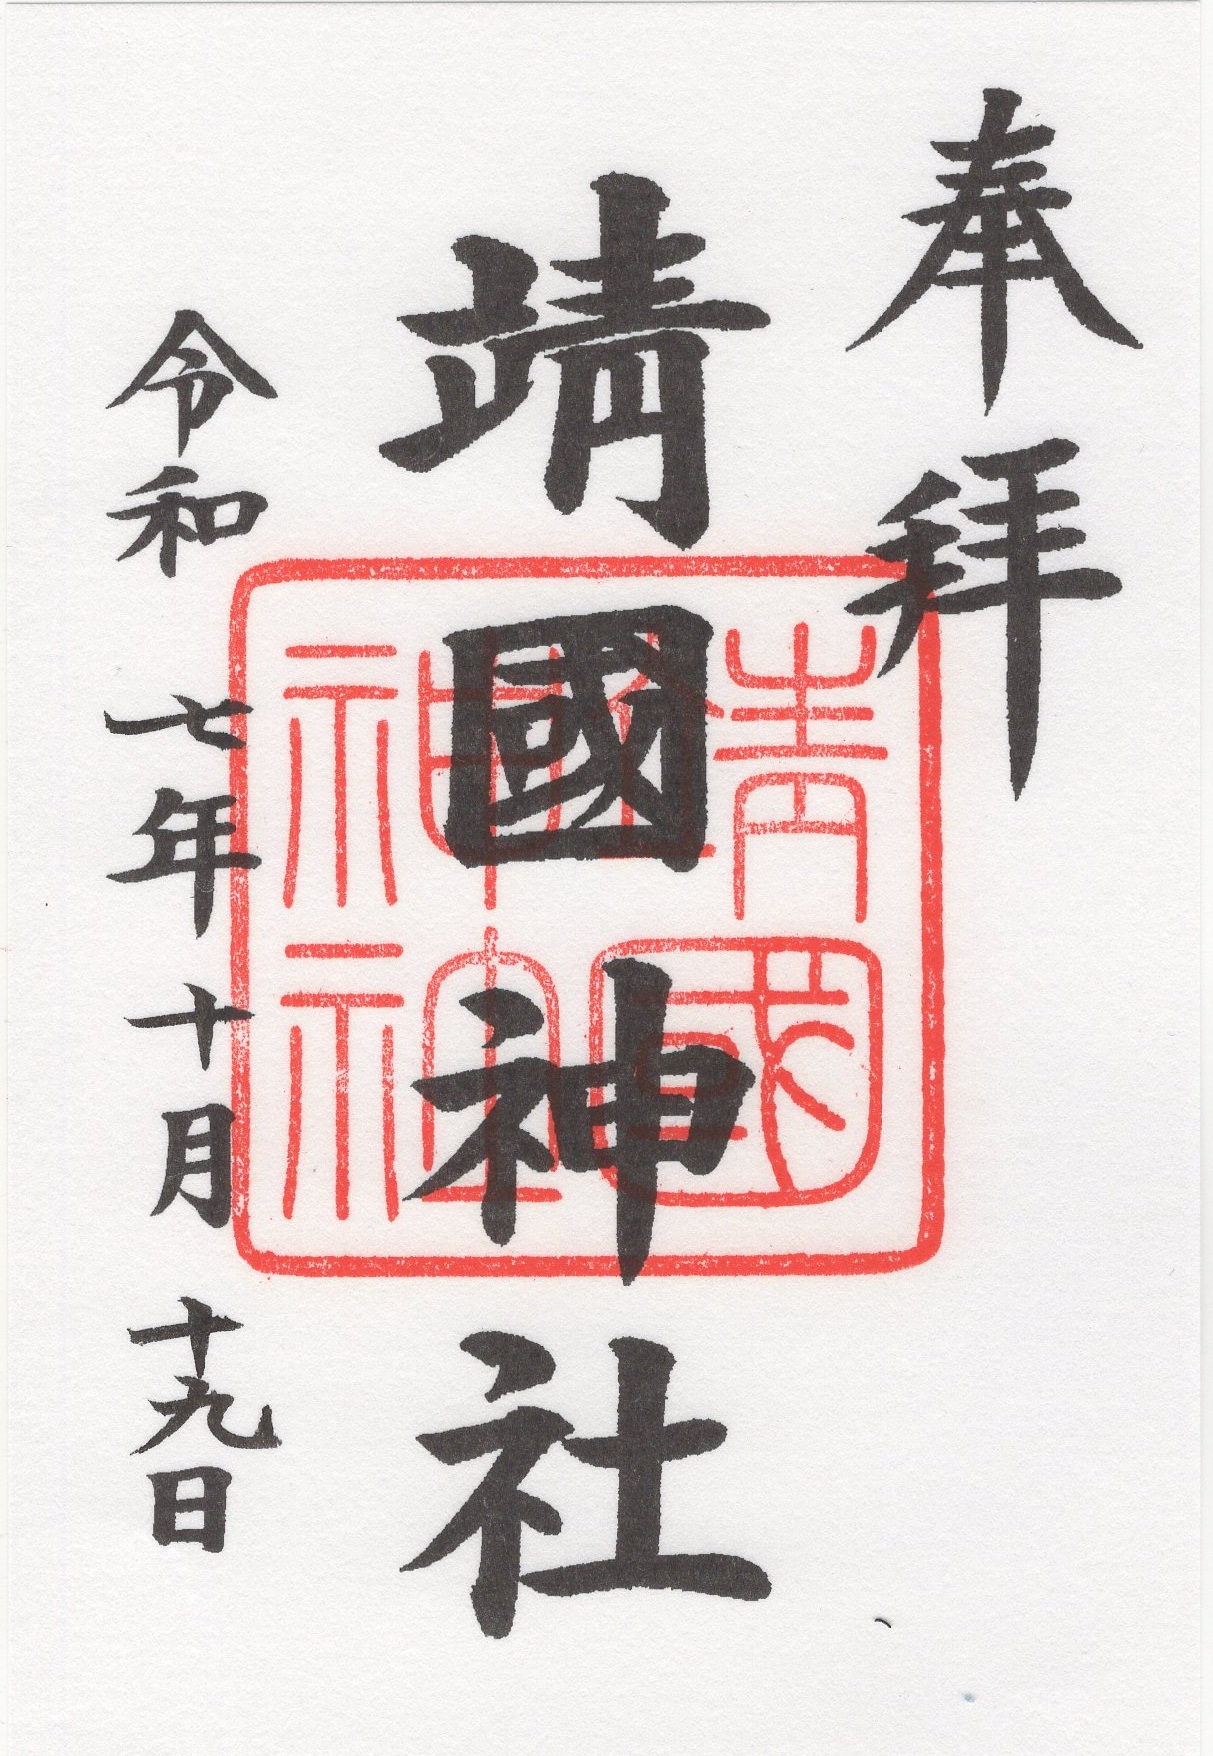 奉拝
靖國神社
靖國
神社
令和七年十月十九日